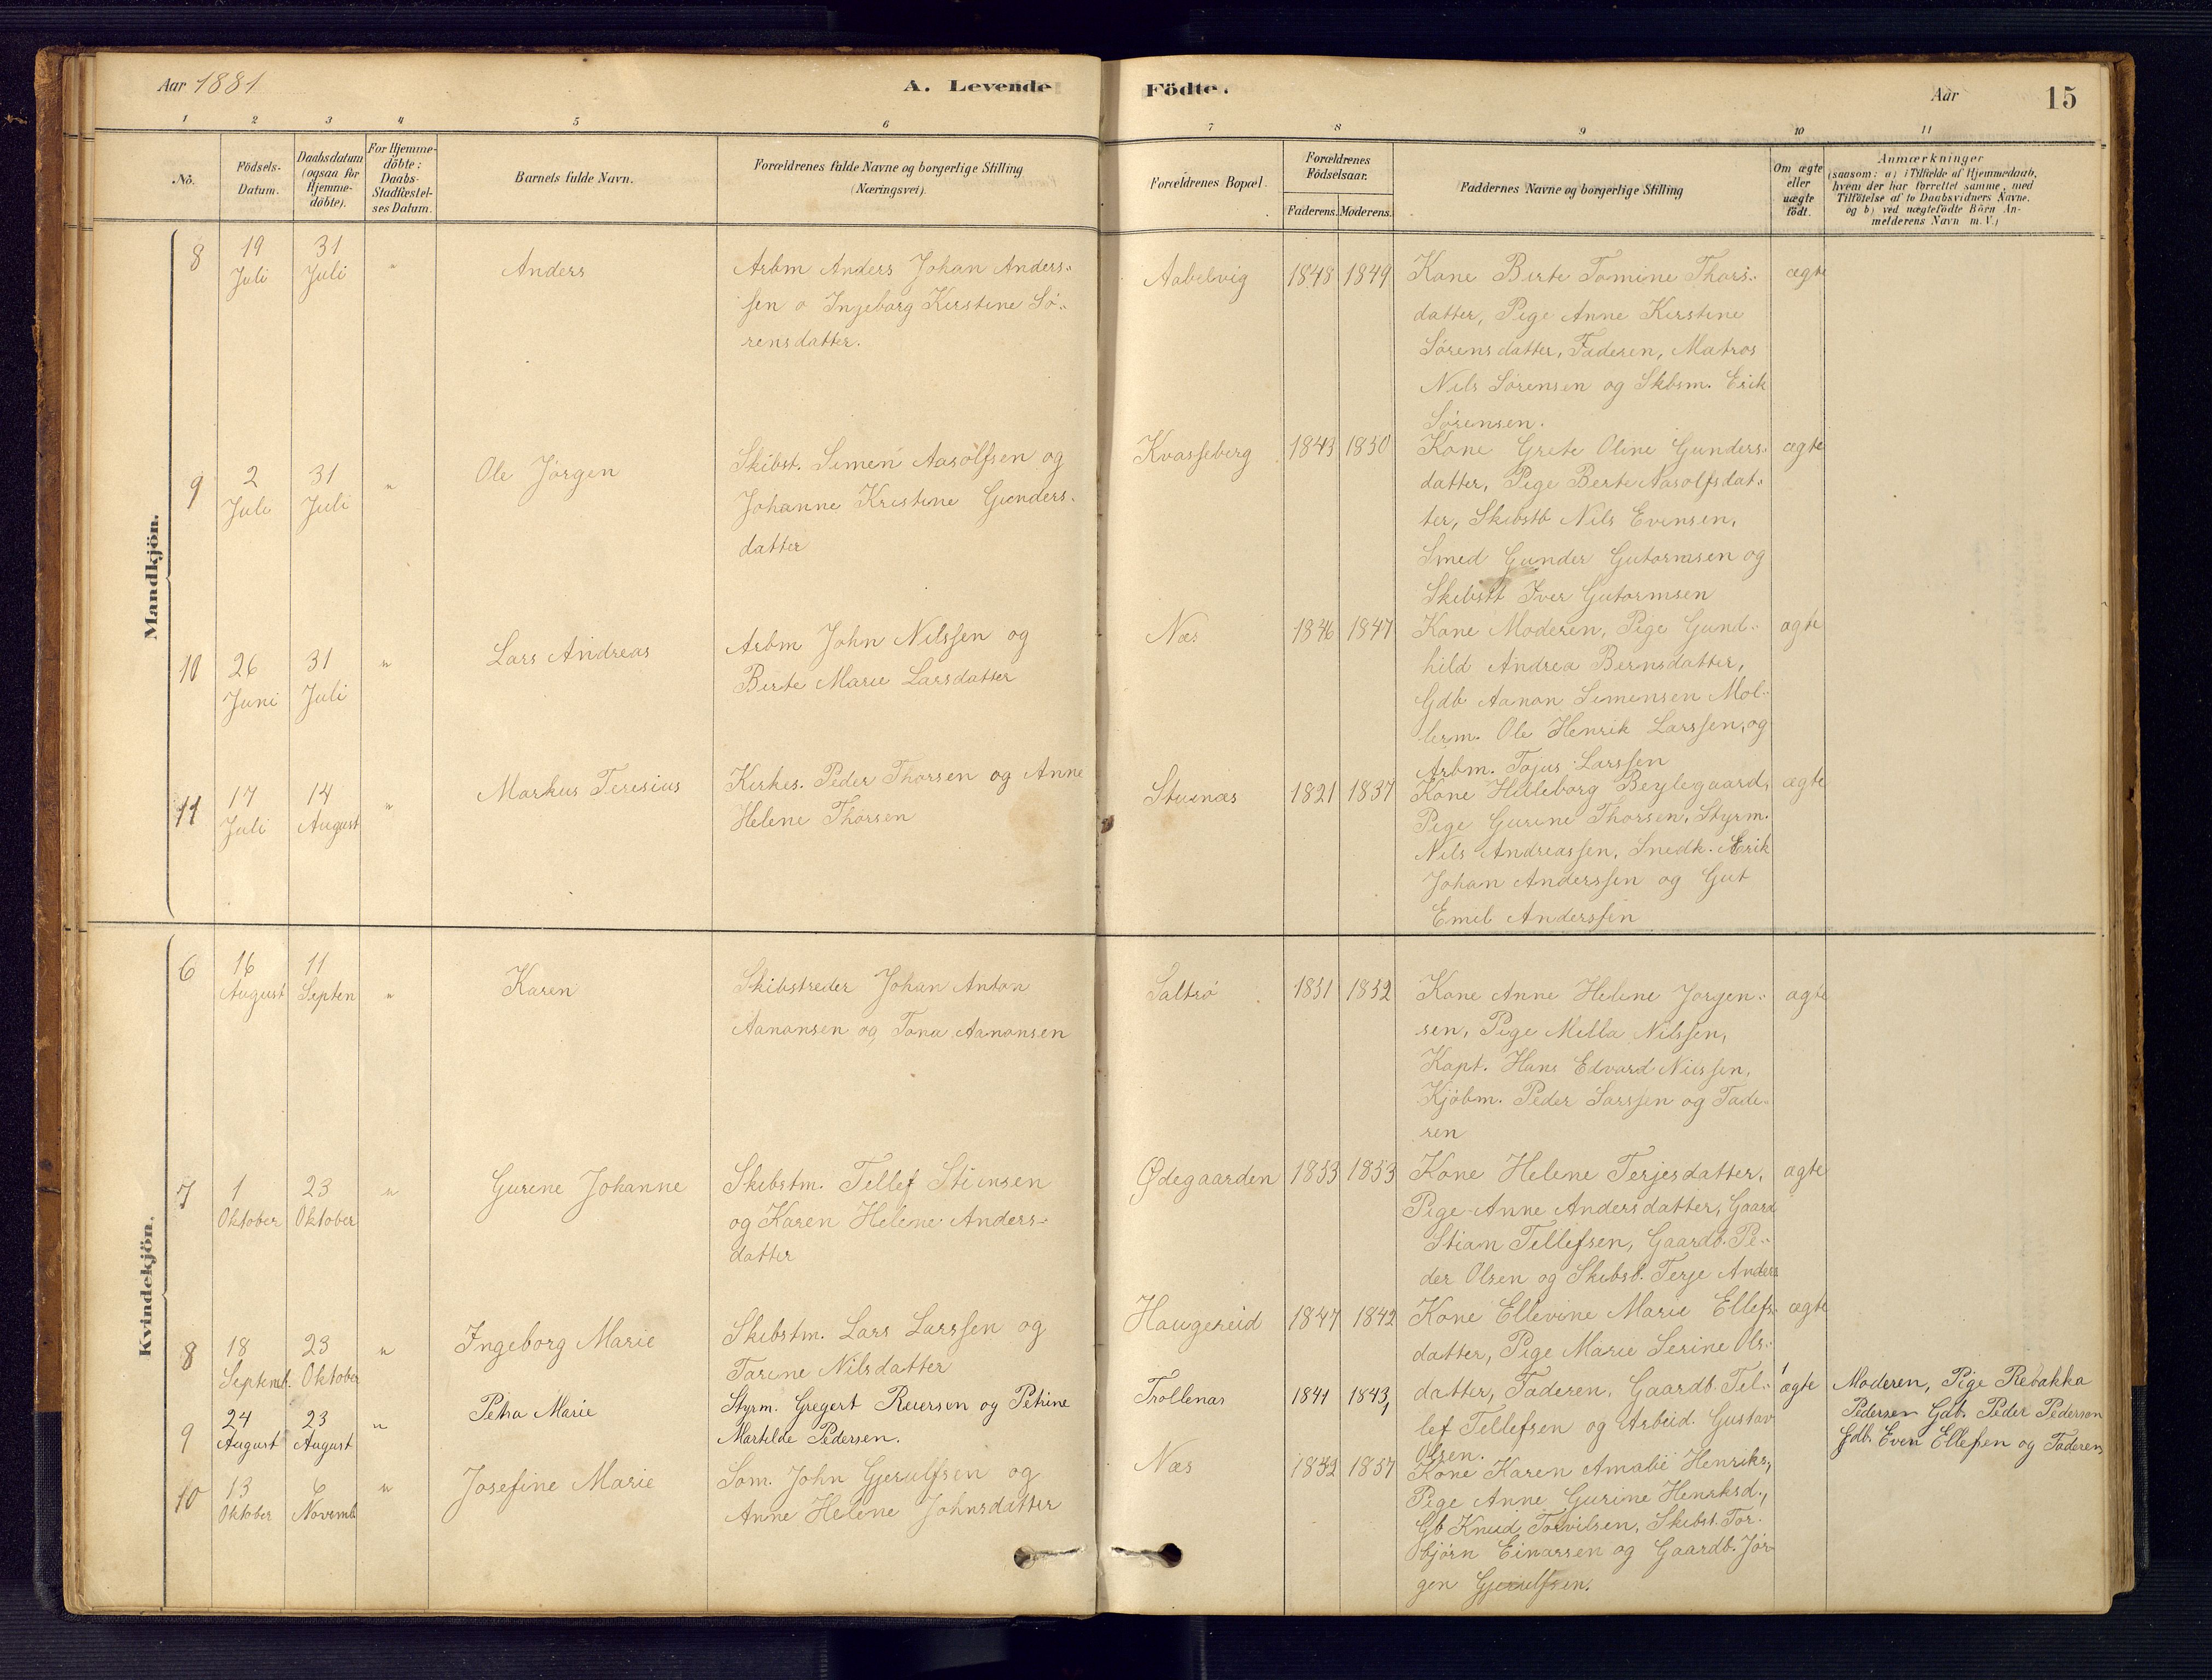 Aar 1881
A. Levende
Födte.
Aar
15
1 2 3 4 5 6 7 8 9 10 11
No.
Födsels-
Datum.
Daabsdatum
(ogsaa for
Hjemme-
döbte).
For Hjemme-
döbte:
Daabs-
Stadfæstel-
ses Datum.
Barnets fulde Navn.
Forældrenes fulde Navne og borgerlige Stilling
(Næringsvei).
Forældrenes Bopæl.
Forældrenes
Födselsaar.
Faderens. Moderens.
Faddernes Navne og borgerlige Stilling
Om ægte
eller
uægte
födt.
Anmærkninger
(saasom: a) i Tilfælde af Hjemmedaab,
hvem der har forrettet samme, med
Tilföielse af to Daabsvidners Navne,
og b) ved uægtefödte Börn An-
melderens Navn m. V.)
Mandkjön.
8
19
Juli
31
Juli
"
Anders
Arbm Anders Johan Anders-
sen o Ingeborg Kirstine Sö-
rensdatter.
Aabelvig
1848 1849
Kone Birte Tomine Thors-
datter, Pige Anne Kirstine
Sörensdatter, Faderen, Matros
Nils Sörensen og Skbsm. Erik
Sörensen.
ægte
9
2
Juli
31
Juli
"
Ole Jörgen
Skibst. Simen Aasolfsen og
Johanne Kristine Gunders-
datter
Kvasseberg
1843 1850
Kone Grete Oline Gunders-
datter, Pige Berte Aasolfsdat-
ter, Skibstb Nils Evensen,
Smed Gunder Gutormsen og
Skibstt Iver Gutormsen
ægte
10
26
Juni
31
Juli
"
Lars Andreas
Arbm John Nilssen og
Birte Marie Larsdatter
Næs
1846 1847
Kone Moderen, Pige Gund-
hild Andrea Bernsdatter,
Gdb Aanon Simensen Möl-
lerm. Ole Henrik Larssen, og
Arbm. Tojus Larssen
ægte
11
17
Juli
14
August
"
Markus Teresius
Kirkes. Peder Thorsen og Anne
Helene Thorsen
Stuenæs
1821 1837
Kone Hilleborg Beylegaard,
Pige Gurine Thorsen, Styrm.
Nils Andreassen, Snedk. Erik
Johan Anderssen og Gut
Emil Anderssen
ægte
Kvindekjön.
6
16
August
11
Septen
"
Karen
Skibstreder Johan Anton
Aanonsen og Tona Aanonsen
Saltrö
1851 1852
Kone Anne Helene Jörgen-
sen, Pige Milla Nilssen,
Kapt. Hans Edvard Nilssen,
Kjöbm. Peder Larssen og Fade-
ren
ægte
7
1
Oktober
23
Oktober
"
Gurine Johanne
Skibstm. Tellef Stiensen
og Karen Helene Anders-
datter
Ødegaarden
1853 1853
Kone Helene Terjesdatter,
Pige Anne Andersdatter, Gaard
Stian Tellefsen, Gaardb. Pe-
der Olsen og Skibsb. Terje Anders
ægte
8
18
Septemb.
23
Oktober
"
Ingeborg Marie
Skibstm. Lars Larssen og
Tarine Nilsdatter
Haugereid
1847 1842
Kone Ellevine Marie Ellefs-
datter, Pige Marie Serine Ols-
datter, Faderen, Gaardb. Tel-
lef Tellefsen og Arbeid. Gustav
Olsen.
ægte
9
24
August
23
August
"
Petra Marie
Styrm. Gregert Reiersen og Petrine
Martilde Pedersen.
Trollenæs
1841 1843
ægte
Moderen, Pige Rebakka
Pedersen Gdb. Peder Pederson
Gdb. Even Ellefsen og Faderen
10
13
Oktober
6
Novemb.
"
Josefine Marie
Söm. John Gjerulfsen og
Anne Helene Johnsdatter
Næs
1832 1837
Kone Karen Amalie Henriks,
Pige Anne Gurine Henrksd.,
Gb Knud Torvilsen, Skibst. Tor-
björn Einarsen og Gaardb. Jör-
gen Gjerulfsen.